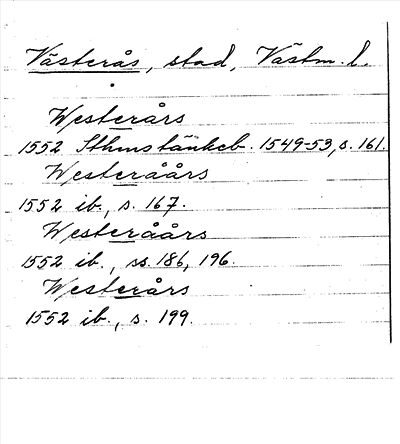 Västerås, stad, Västm. l.
Westerårs
1552 Sthms tänkeb. 1549-53, s. 161.
Westeråårs
1552 ib., s. 167.
Westeråårs
1552 ib., ss. 186, 196.
Westerårs
1552 ib., s. 199.